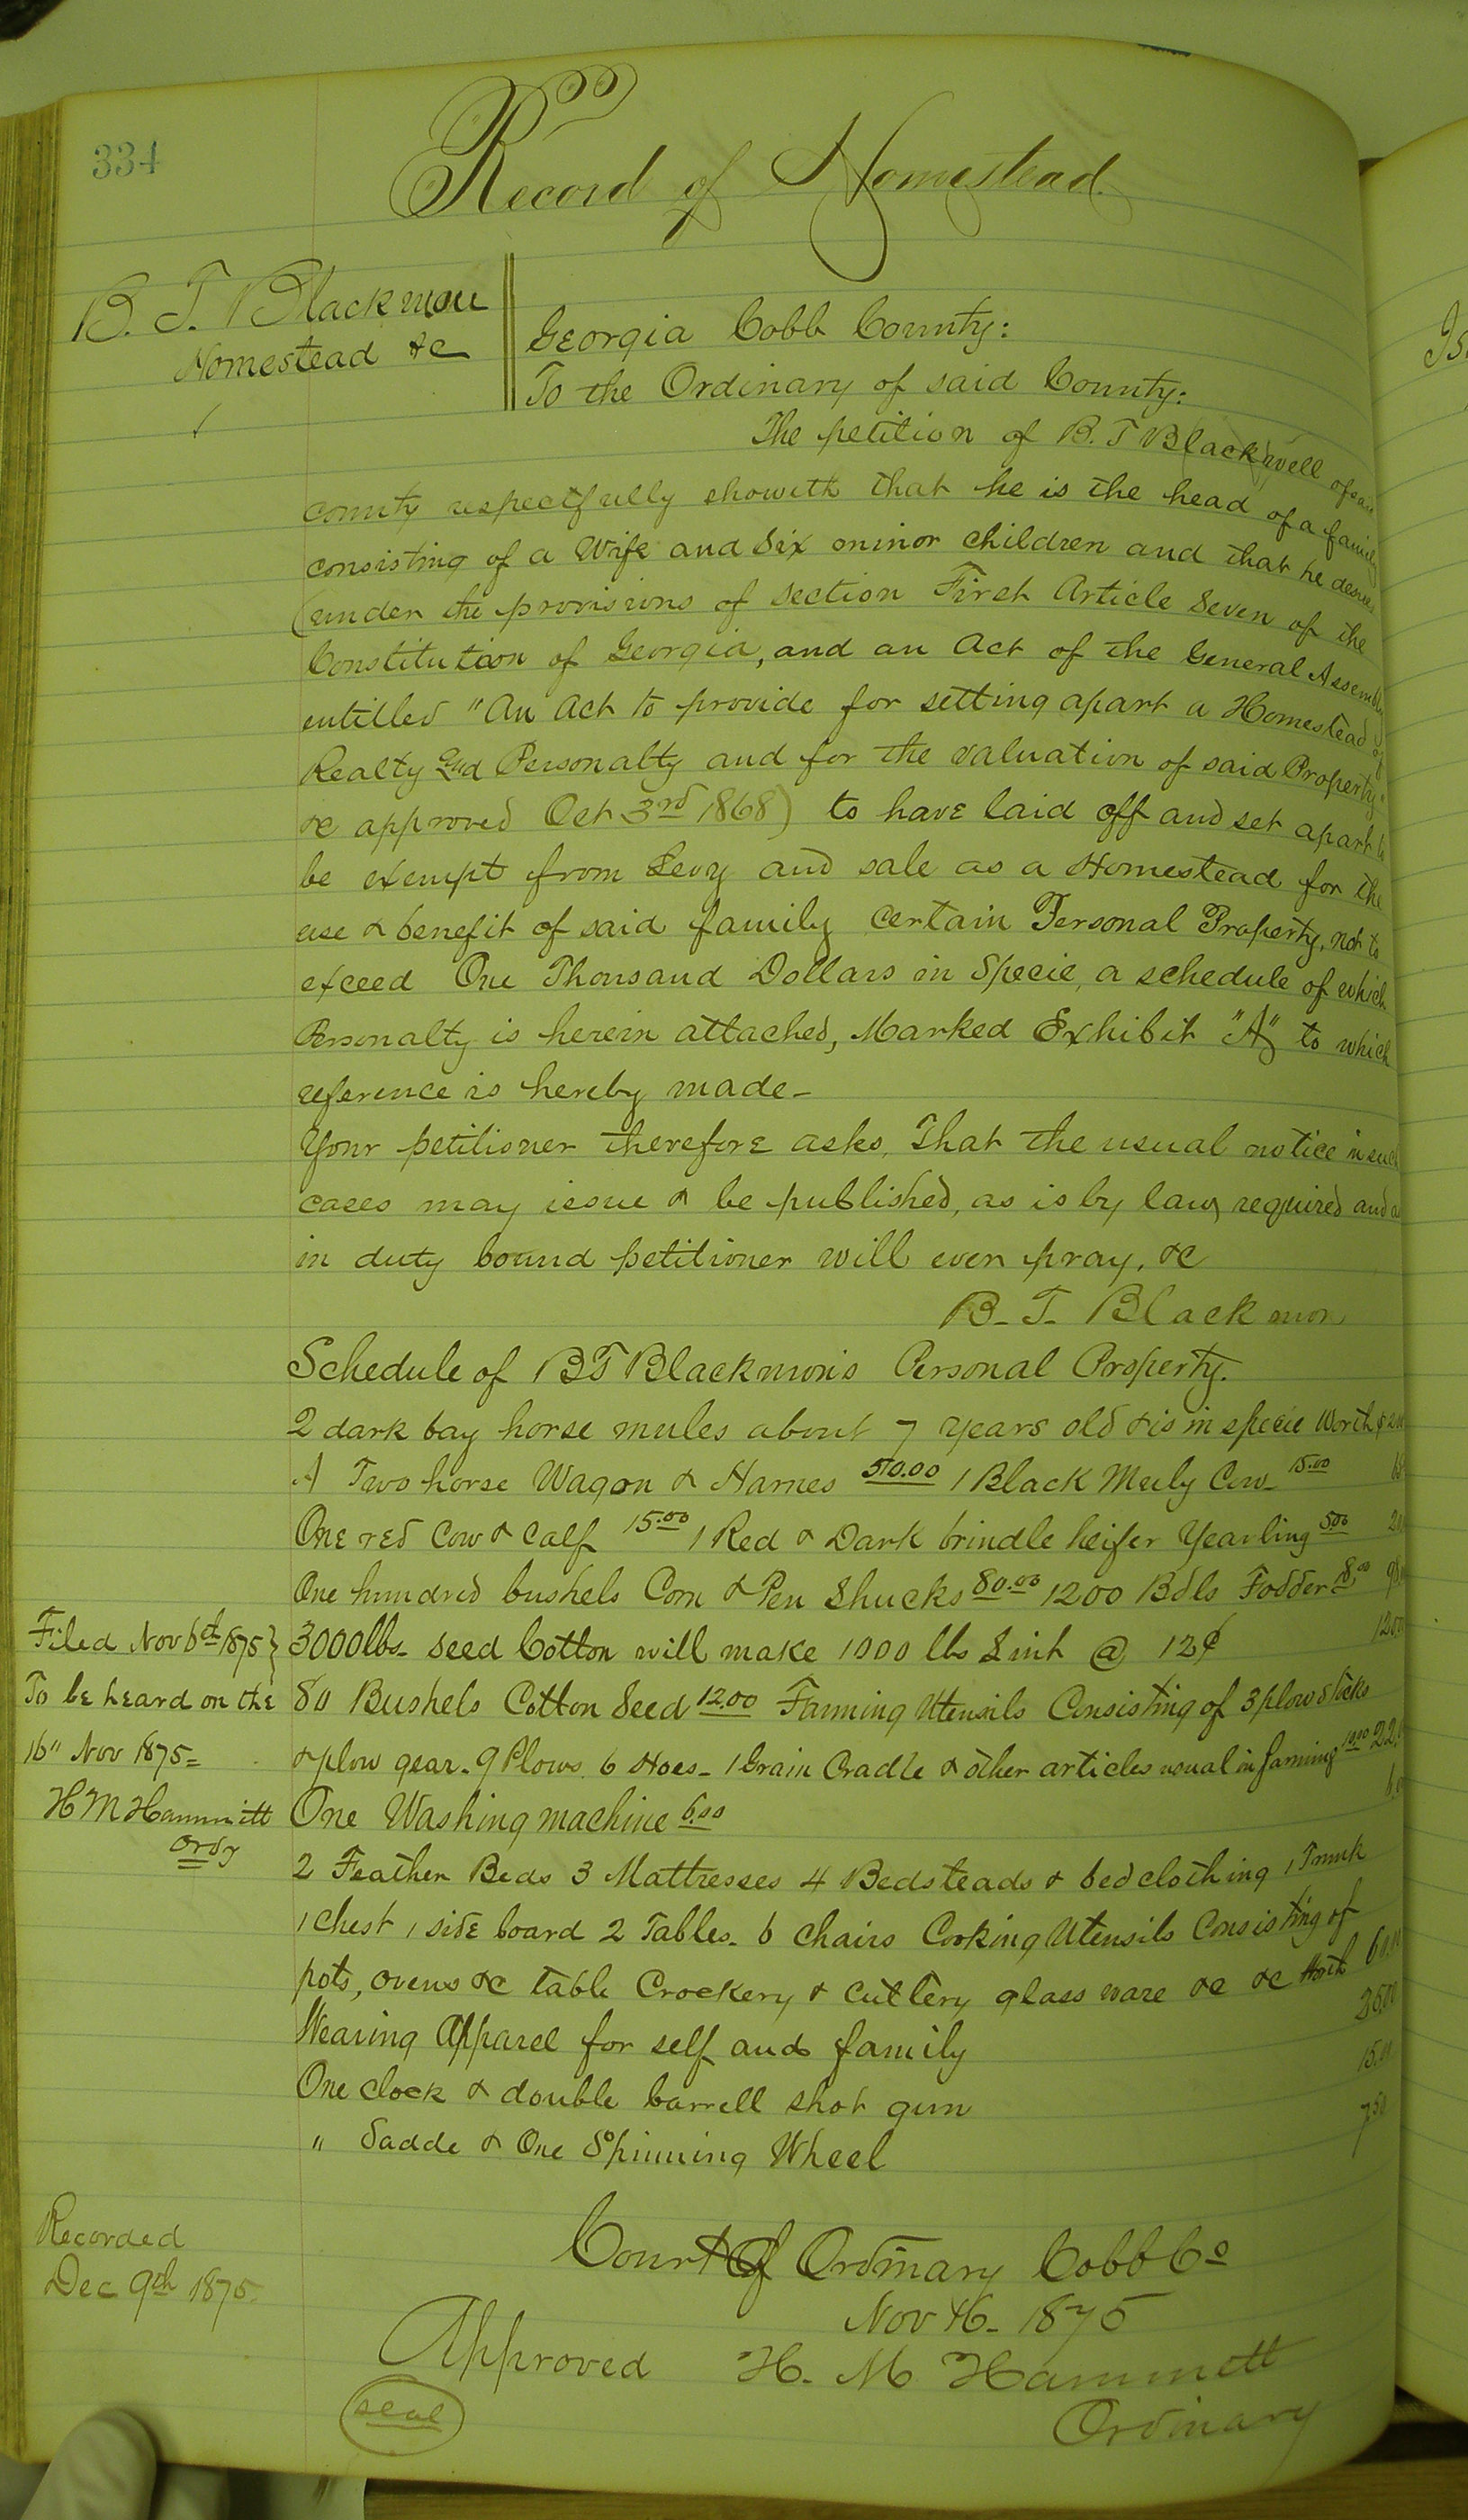 334
Record of Homestead.
B. T. Blackmon
Homestead &c
Georgia Cobb County:
To the Ordinary of said County:
The petition of B. T Blackwell of said
county respectfully showeth that he is the head of a family
consisting of a Wife and Six minor children and that he desires
(under the provisions of section First Article Seven of the
Constitution of Georgia, and an Act of the General Assembly
entitled "An Act to provide for setting apart a Homestead of
Realty and Personalty and for the valuation of said Property"
&c approved Oct 3rd 1868) to have laid off and set apart to
be exempt from Levy and sale as a Homestead for the
use & benefit of said family certain Personal Property, not to
exceed One Thousand Dollars in Specie, a schedule of which
Personalty is herein attached, Marked Exhibit "A" to which
reference is hereby made-
Your petitioner therefore asks, That the usual notice in such
cases may issue & be published, as is by law required and as
in duty bound petitioner will ever pray, &c
B. T. Blackmon
Schedule of B T Blackmon's Personal Property.
2 dark bay horse mules about 7 years old & is in specie Worth
A Two horse Wagon & Harnes 50.00 1 Black Meely Cow 15.00
One red Cow & Calf 15.00 1 Red & Dark brindle heifer Yearling 5.00
One hundred bushels Corn & Pen Shucks 80.00 1200 Bdls Fodder 18.00
Filed Nov 6th 1875}
3000 lbs seed Cotton will make 1000 lbs Lint @ 12¢
To be heard on the
80 Bushels Cotton Seed 12.00 Farming Utensils Consisting of 3 plow stocks
16" Nov 1875=
& plow gear. 9 Plows. 6 Hoes- 1 Grain Cradle & other articles usual in farming 10.00 22.
H M Hammett
Ordy
One Washing machine 6.00
2 Feather Beds 3 Mattresses 4 Bedsteads & bed clothing 1 Trunk
1 Chest 1 side board 2 Tables. 6 chairs Cooking Utensils Consisting of
pots, ovens &c table Crockery & cuttery glass ware &c &c
Wearing Apparel for self and family
One clock & double barrell shot gun
" Sadde & One Spinning Wheel
7.50
Recorded
Dec 9th 1875.
Court Of Ordinary Cobb Co
Nov 16- 1875
Approved H. M Hammett
seal
Ordinary